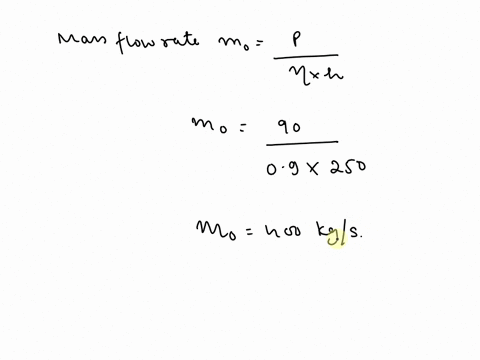 Mass flow rate m₀ = P / η×h
m₀ = 90 / 0.9 × 250
m₀ = 400 kg/s.